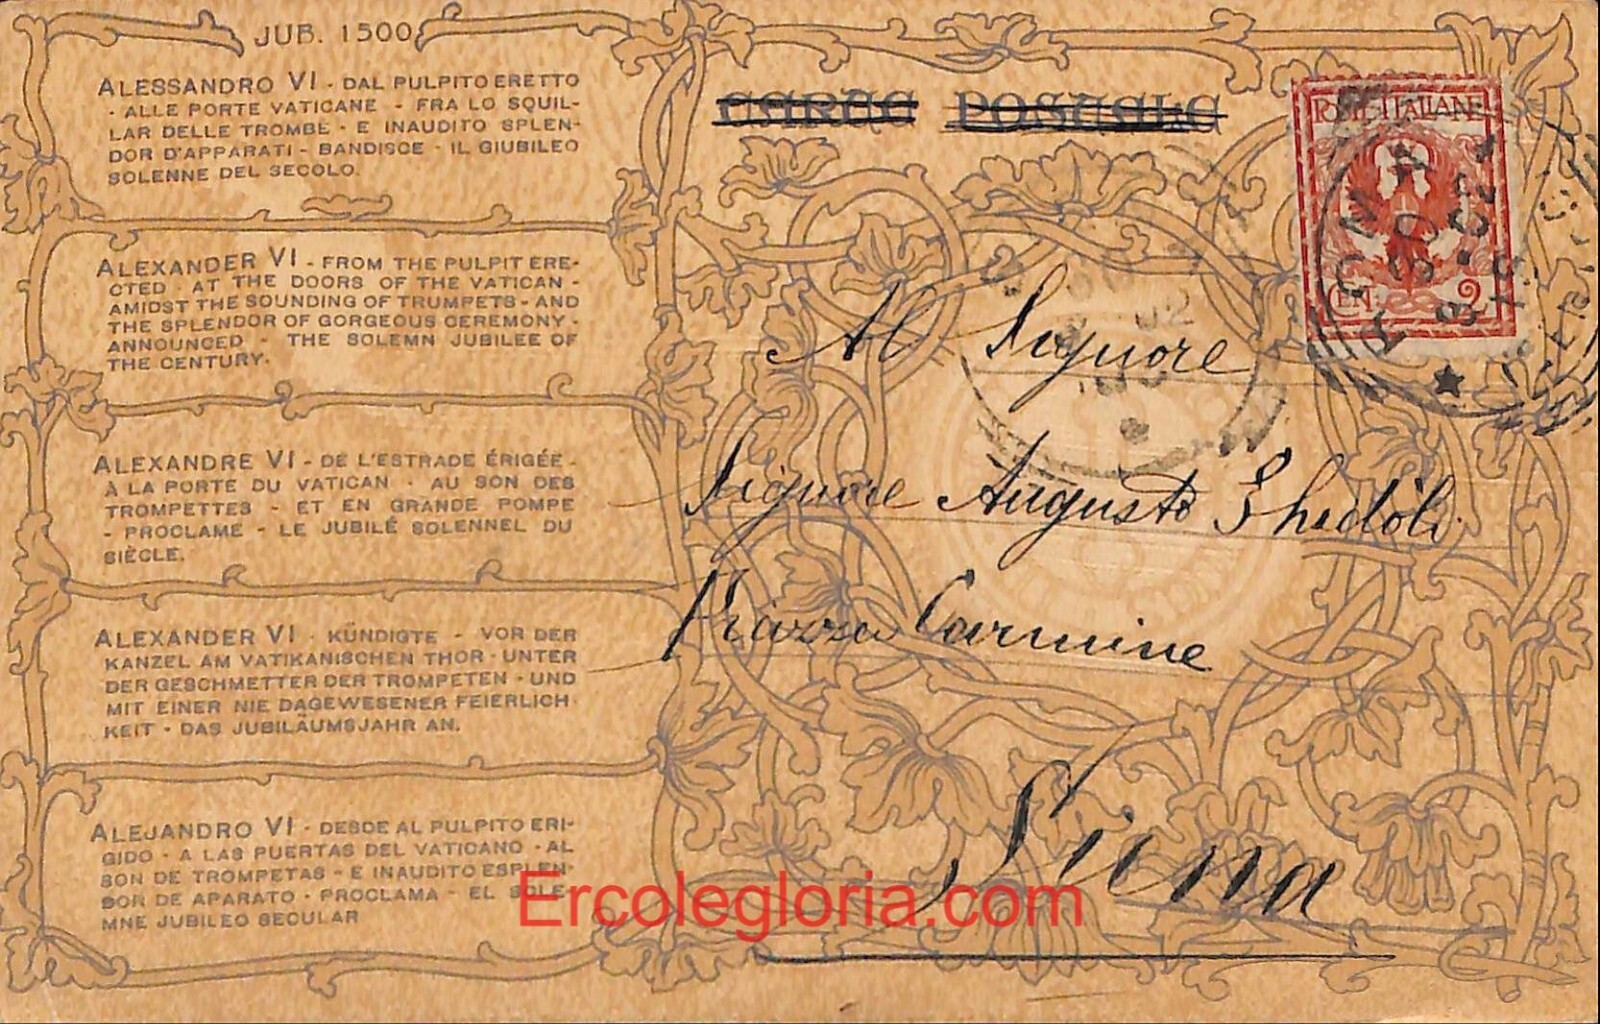 JUB. 1500
ALESSANDRO VI - DAL PULPITO ERETTO
- ALLE PORTE VATICANE - FRA LO SQUIL-
LAR DELLE TROMBE - E INAUDITO SPLEN-
DOR D'APPARATI - BANDISCE - IL GIUBILEO
SOLENNE DEL SECOLO.
ALEXANDER VI - FROM THE PULPIT ERE-
CTED - AT THE DOORS OF THE VATICAN -
AMIDST THE SOUNDING OF TRUMPETS - AND
THE SPLENDOR OF GORGEOUS CEREMONY -
ANNOUNCED - THE SOLEMN JUBILEE OF
THE CENTURY.
ALEXANDRE VI - DE L'ESTRADE ÉRIGÉE -
À LA PORTE DU VATICAN - AU SON DES
TROMPETTES - ET EN GRANDE POMPE
- PROCLAME - LE JUBILÉ SOLENNEL DU
SIÈCLE.
ALEXANDER VI - KÜNDIGTE - VOR DER
KANZEL AM VATIKANISCHEN THOR - UNTER
DER GESCHMETTER DER TROMPETEN - UND
MIT EINER NIE DAGEWESENER FEIERLICH-
KEIT - DAS JUBILÄUMSJAHR AN.
ALEJANDRO VI - DESDE AL PULPITO ERI-
GIDO - A LAS PUERTAS DEL VATICANO - AL
SON DE TROMPETAS - E INAUDITO ESPLEN-
DOR DE APARATO - PROCLAMA - EL SOLE-
MNE JUBILEO SECULAR
CARTE POSTALE
POSTE ITALIANE
CENT. 2
ROMA
Al Signore
Signore Augusto
Piazza Carmine
Siena
Ercolegloria.com